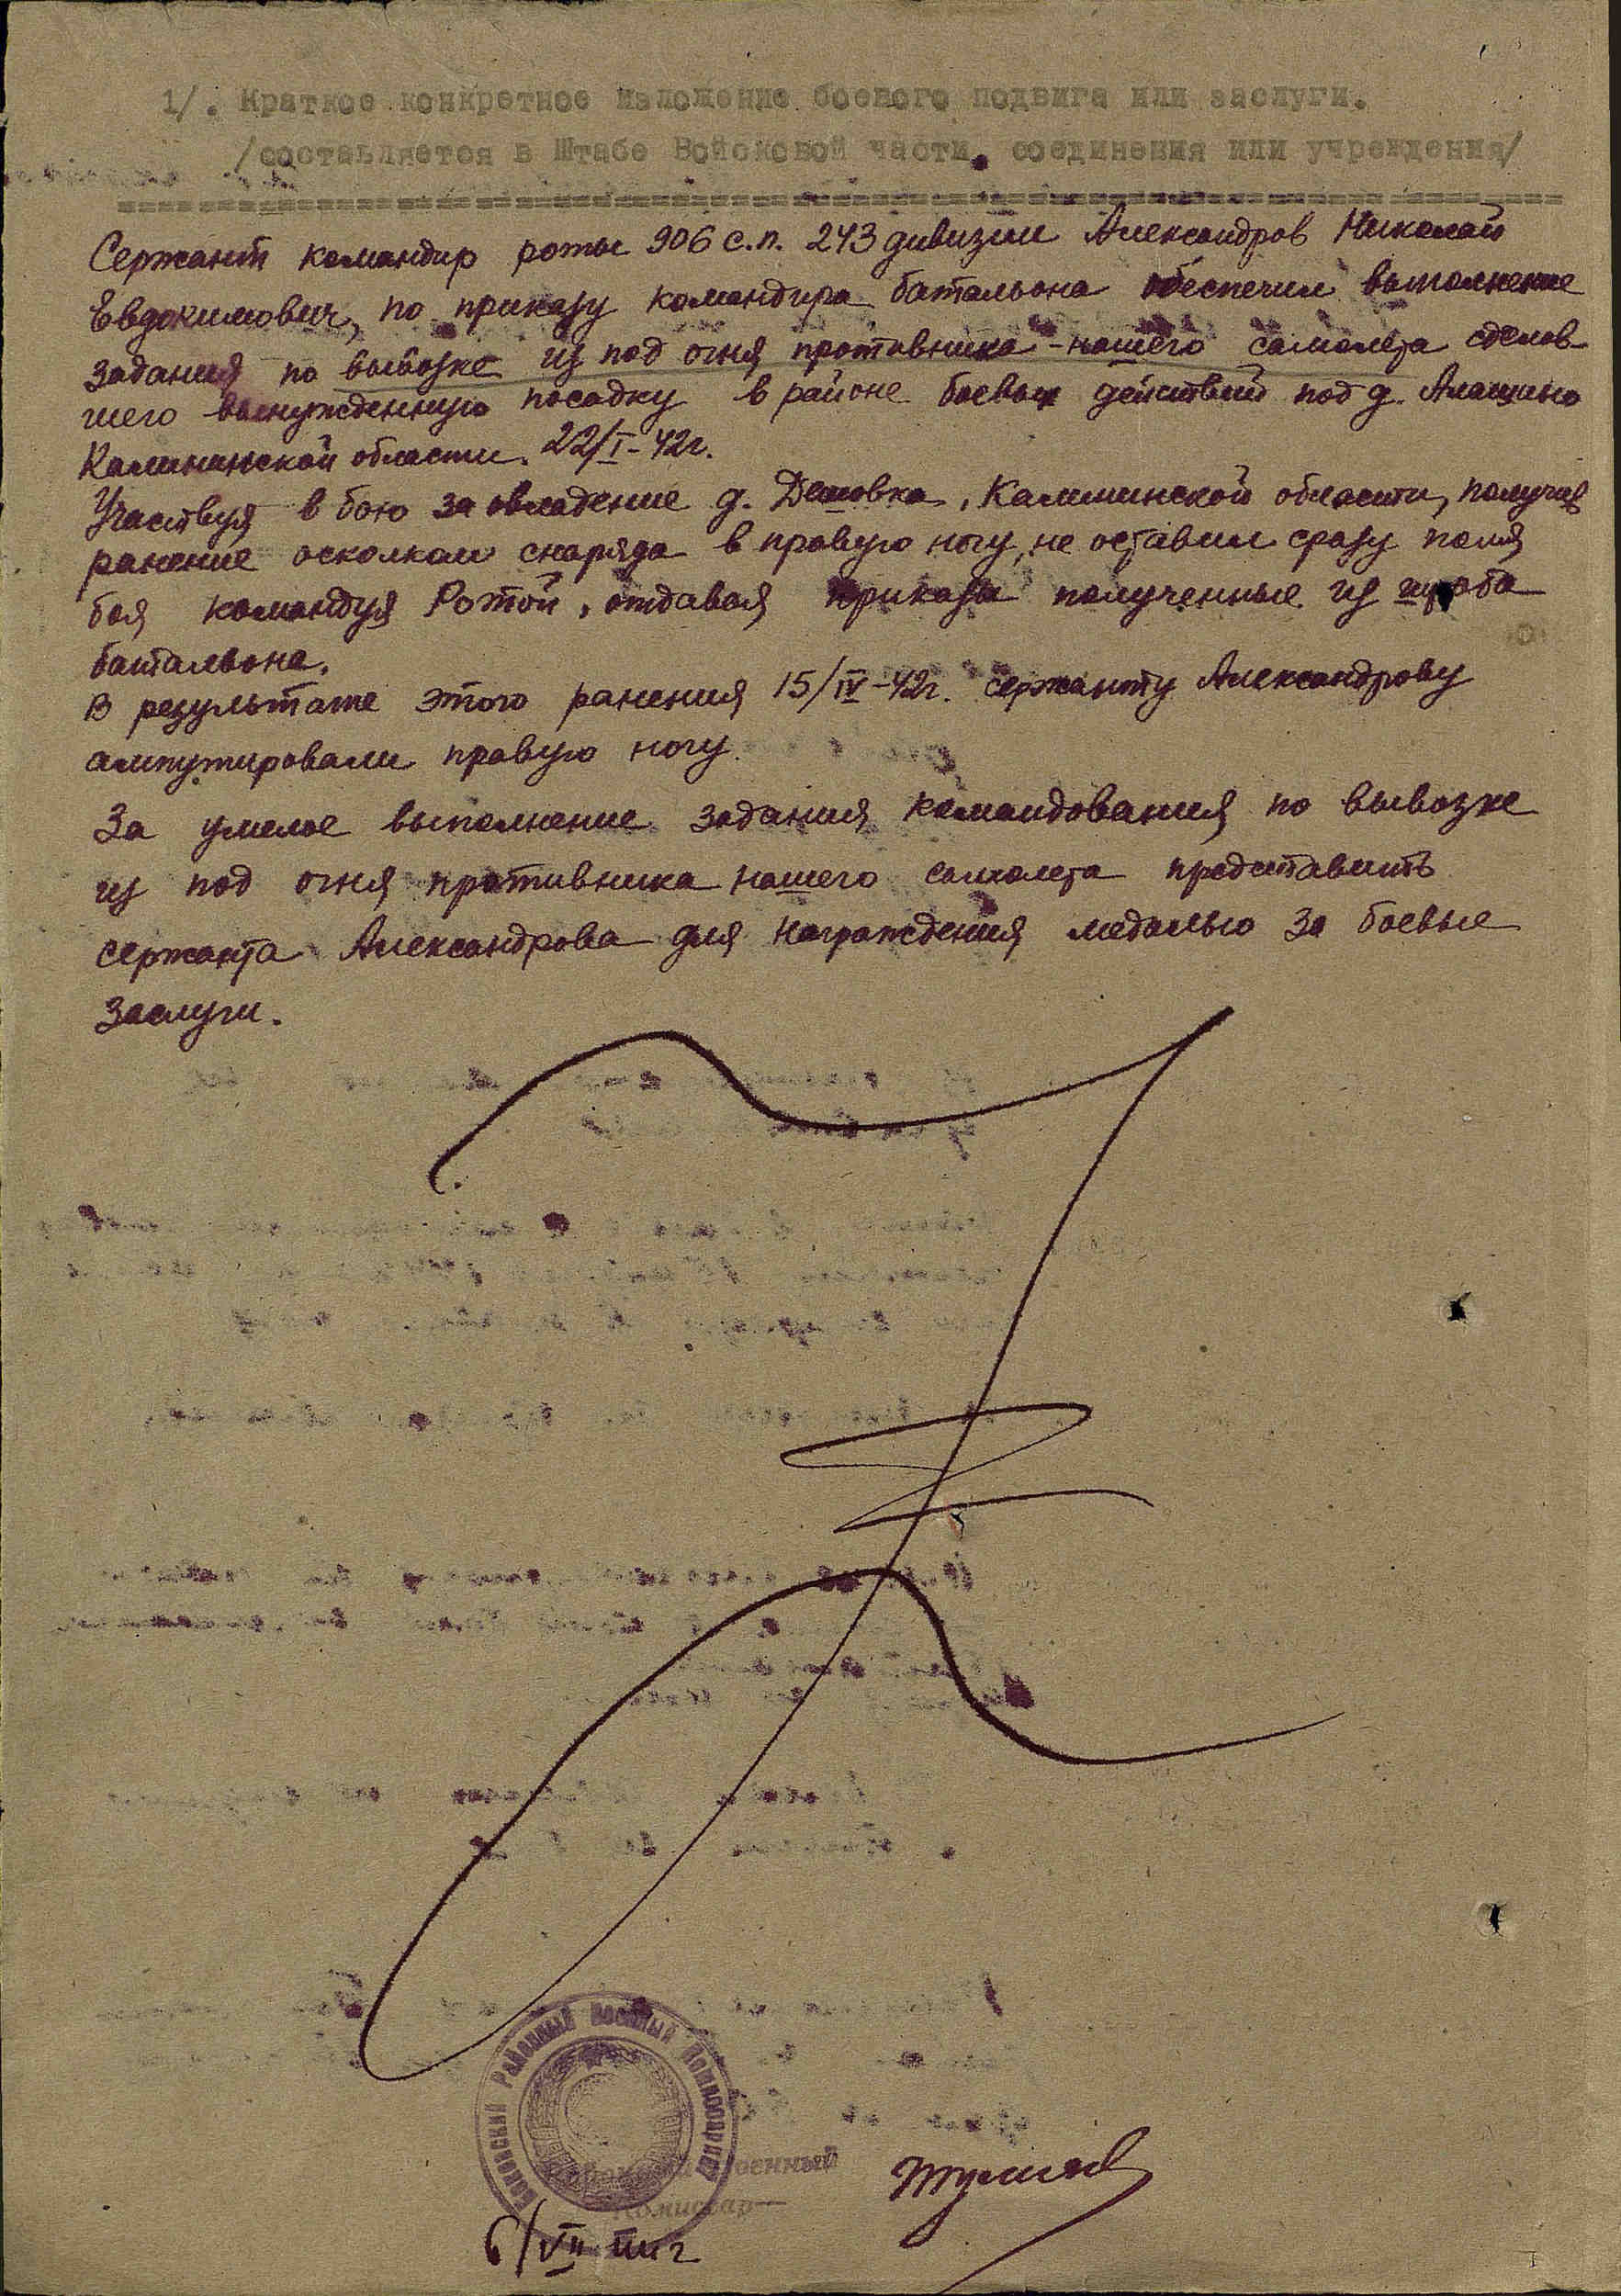 1/. Краткое конкретное изложение боевого подвига или заслуги.
/составляется в Штабе Войсковой части, соединения или учреждения/
Сержант командир роты 906 с.п. 243 дивизии Александров Николай
Евдокимович, по приказу командира батальона обеспечил выполнение
задания по вывозке из под огня противника нашего самолета сделав-
шего вынужденную посадку в районе боевых действий под д.
Калининской области. 22/I-42г.
Участвуя в бою за овладение д. Дешовка, Калининской области, получив
ранение осколком снаряда в правую ногу, не оставил сразу поля
боя командуя Ротой, отдавая приказы полученные из штаба
батальона.
В результате этого ранения 15/IV-42г. сержанту Александрову
ампутировали правую ногу.
За умелое выполнение задания командования по вывозке
из под огня противника нашего самолета представить
сержанта Александрова для награждения медалью За боевые
заслуги.
Районный Военный Комиссариат
Военный
Комиссар
6/VII